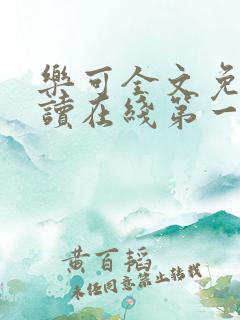 樂可全文免
讀在綫第一
黄百韬
未经同意禁止转载